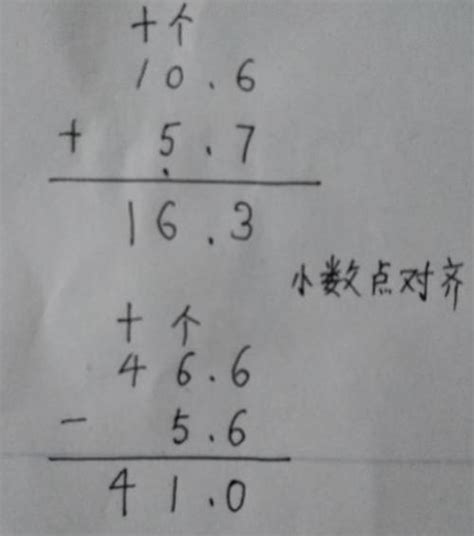 十个
10.6
+ 5.7
16.3
小数点对齐
十个
46.6
- 5.6
41.0